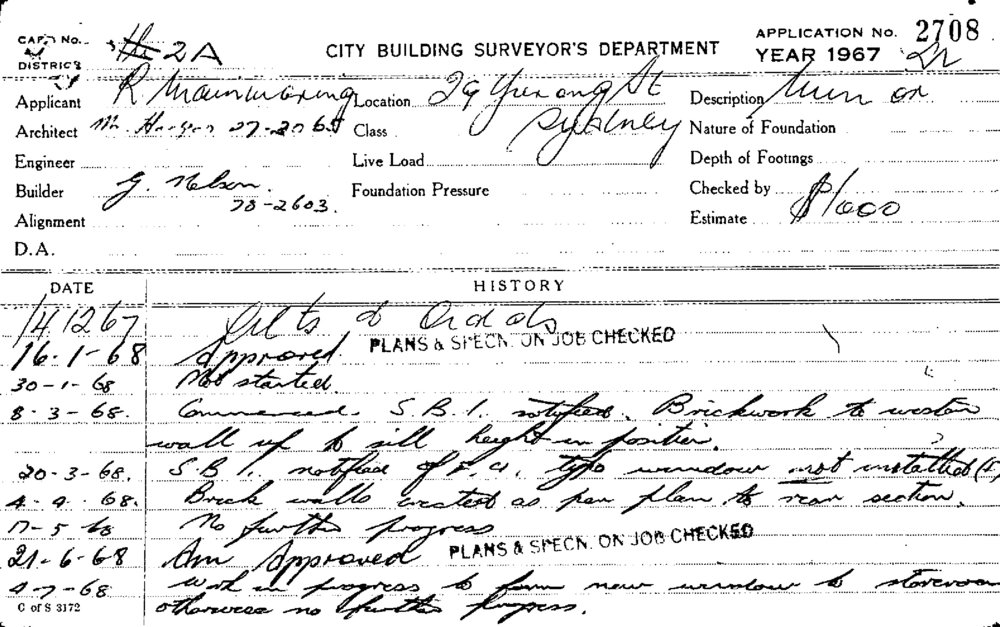 CARD No. 2A
DISTRICT
CITY BUILDING SURVEYOR'S DEPARTMENT
APPLICATION No. 2708
YEAR 1967
Applicant R Mainwaring Location 29 Yurong St Sydney Description
Architect M. 27-2065 Class Nature of Foundation
Engineer Live Load Depth of Footings
Builder G. Nelson. 70-2603. Foundation Pressure Checked by
Alignment Estimate $1000
D.A.
DATE HISTORY
14 12 67 Alts & Addds
16-1-68 Approved. PLANS & SPECN. ON JOB CHECKED
30-1-68 Not started.
8-3-68. Commenced. S.B.I. notified. Brickwork to western
wall up to sill height in position.
20-3-68. S.B.I. notified of type window not installed
4-4-68. Brick walls erected as per plan to rear section.
17-5-68 No further progress
21-6-68 Am Approved PLANS & SPECN. ON JOB CHECKED
4-7-68 Work in progress to form new window to storeroom
otherwise no further progress.
C of S 3172